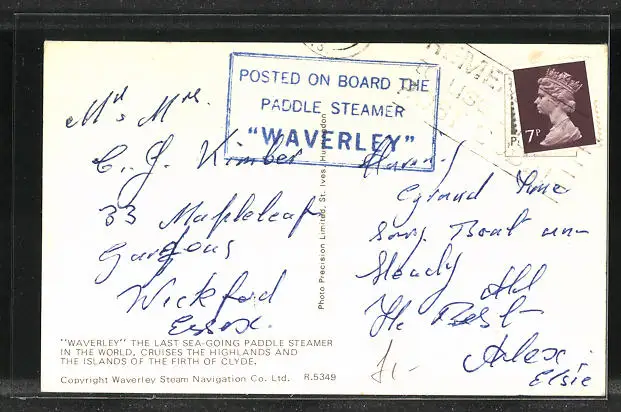 POSTED ON BOARD THE
PADDLE STEAMER
"WAVERLEY"
7P
Mr & Mrs.
C. J. Kimber
33 Mapleleaf
Gardens
Wickford
Essex.
Having
a grand time
sorry Boat un-
steady All
The Best
Alex.
Elsie
"WAVERLEY" THE LAST SEA-GOING PADDLE STEAMER
IN THE WORLD, CRUISES THE HIGHLANDS AND
THE ISLANDS OF THE FIRTH OF CLYDE.
Copyright Waverley Steam Navigation Co. Ltd. R.5349
Photo Precision Limited, St. Ives, Huntingdon
£1-